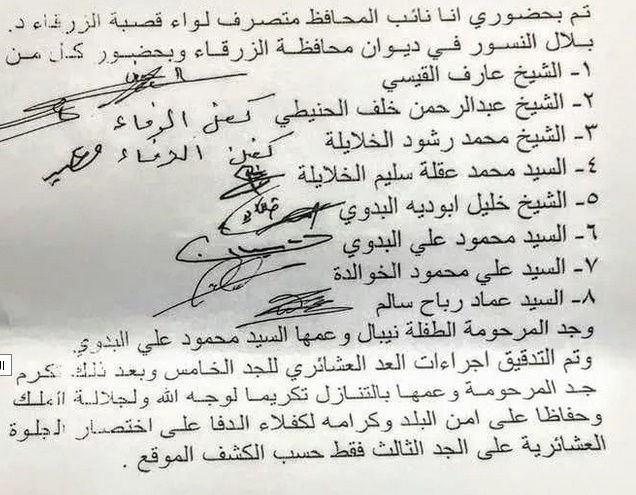 تم بحضوري انا نائب المحافظ متصرف لواء قصبة الزرقاء د.
بلال النسور في ديوان محافظة الزرقاء وبحضور كل من
١- الشيخ عارف القيسي
٢- الشيخ عبدالرحمن خلف الحنيطي كفيل الدفاء
٣- الشيخ محمد رشود الخلايلة كفيل الدفاء
٤- السيد محمد عقلة سليم الخلايلة
٥- الشيخ خليل ابوديه البدوي
٦- السيد محمود علي البدوي
٧- السيد علي محمود الخوالدة
٨- السيد عماد رباح سالم
وجد المرحومة الطفلة نيبال وعمها السيد محمود علي البدوي.
وتم التدقيق اجراءات العد العشائري للجد الخامس وبعد ذلك تكرم
جد المرحومة وعمها بالتنازل تكريما لوجه الله ولجلالة الملك
وحفاظا على امن البلد وكرامه لكفلاء الدفا على اختصار الجلوة
العشائرية على الجد الثالث فقط حسب الكشف الموقع .